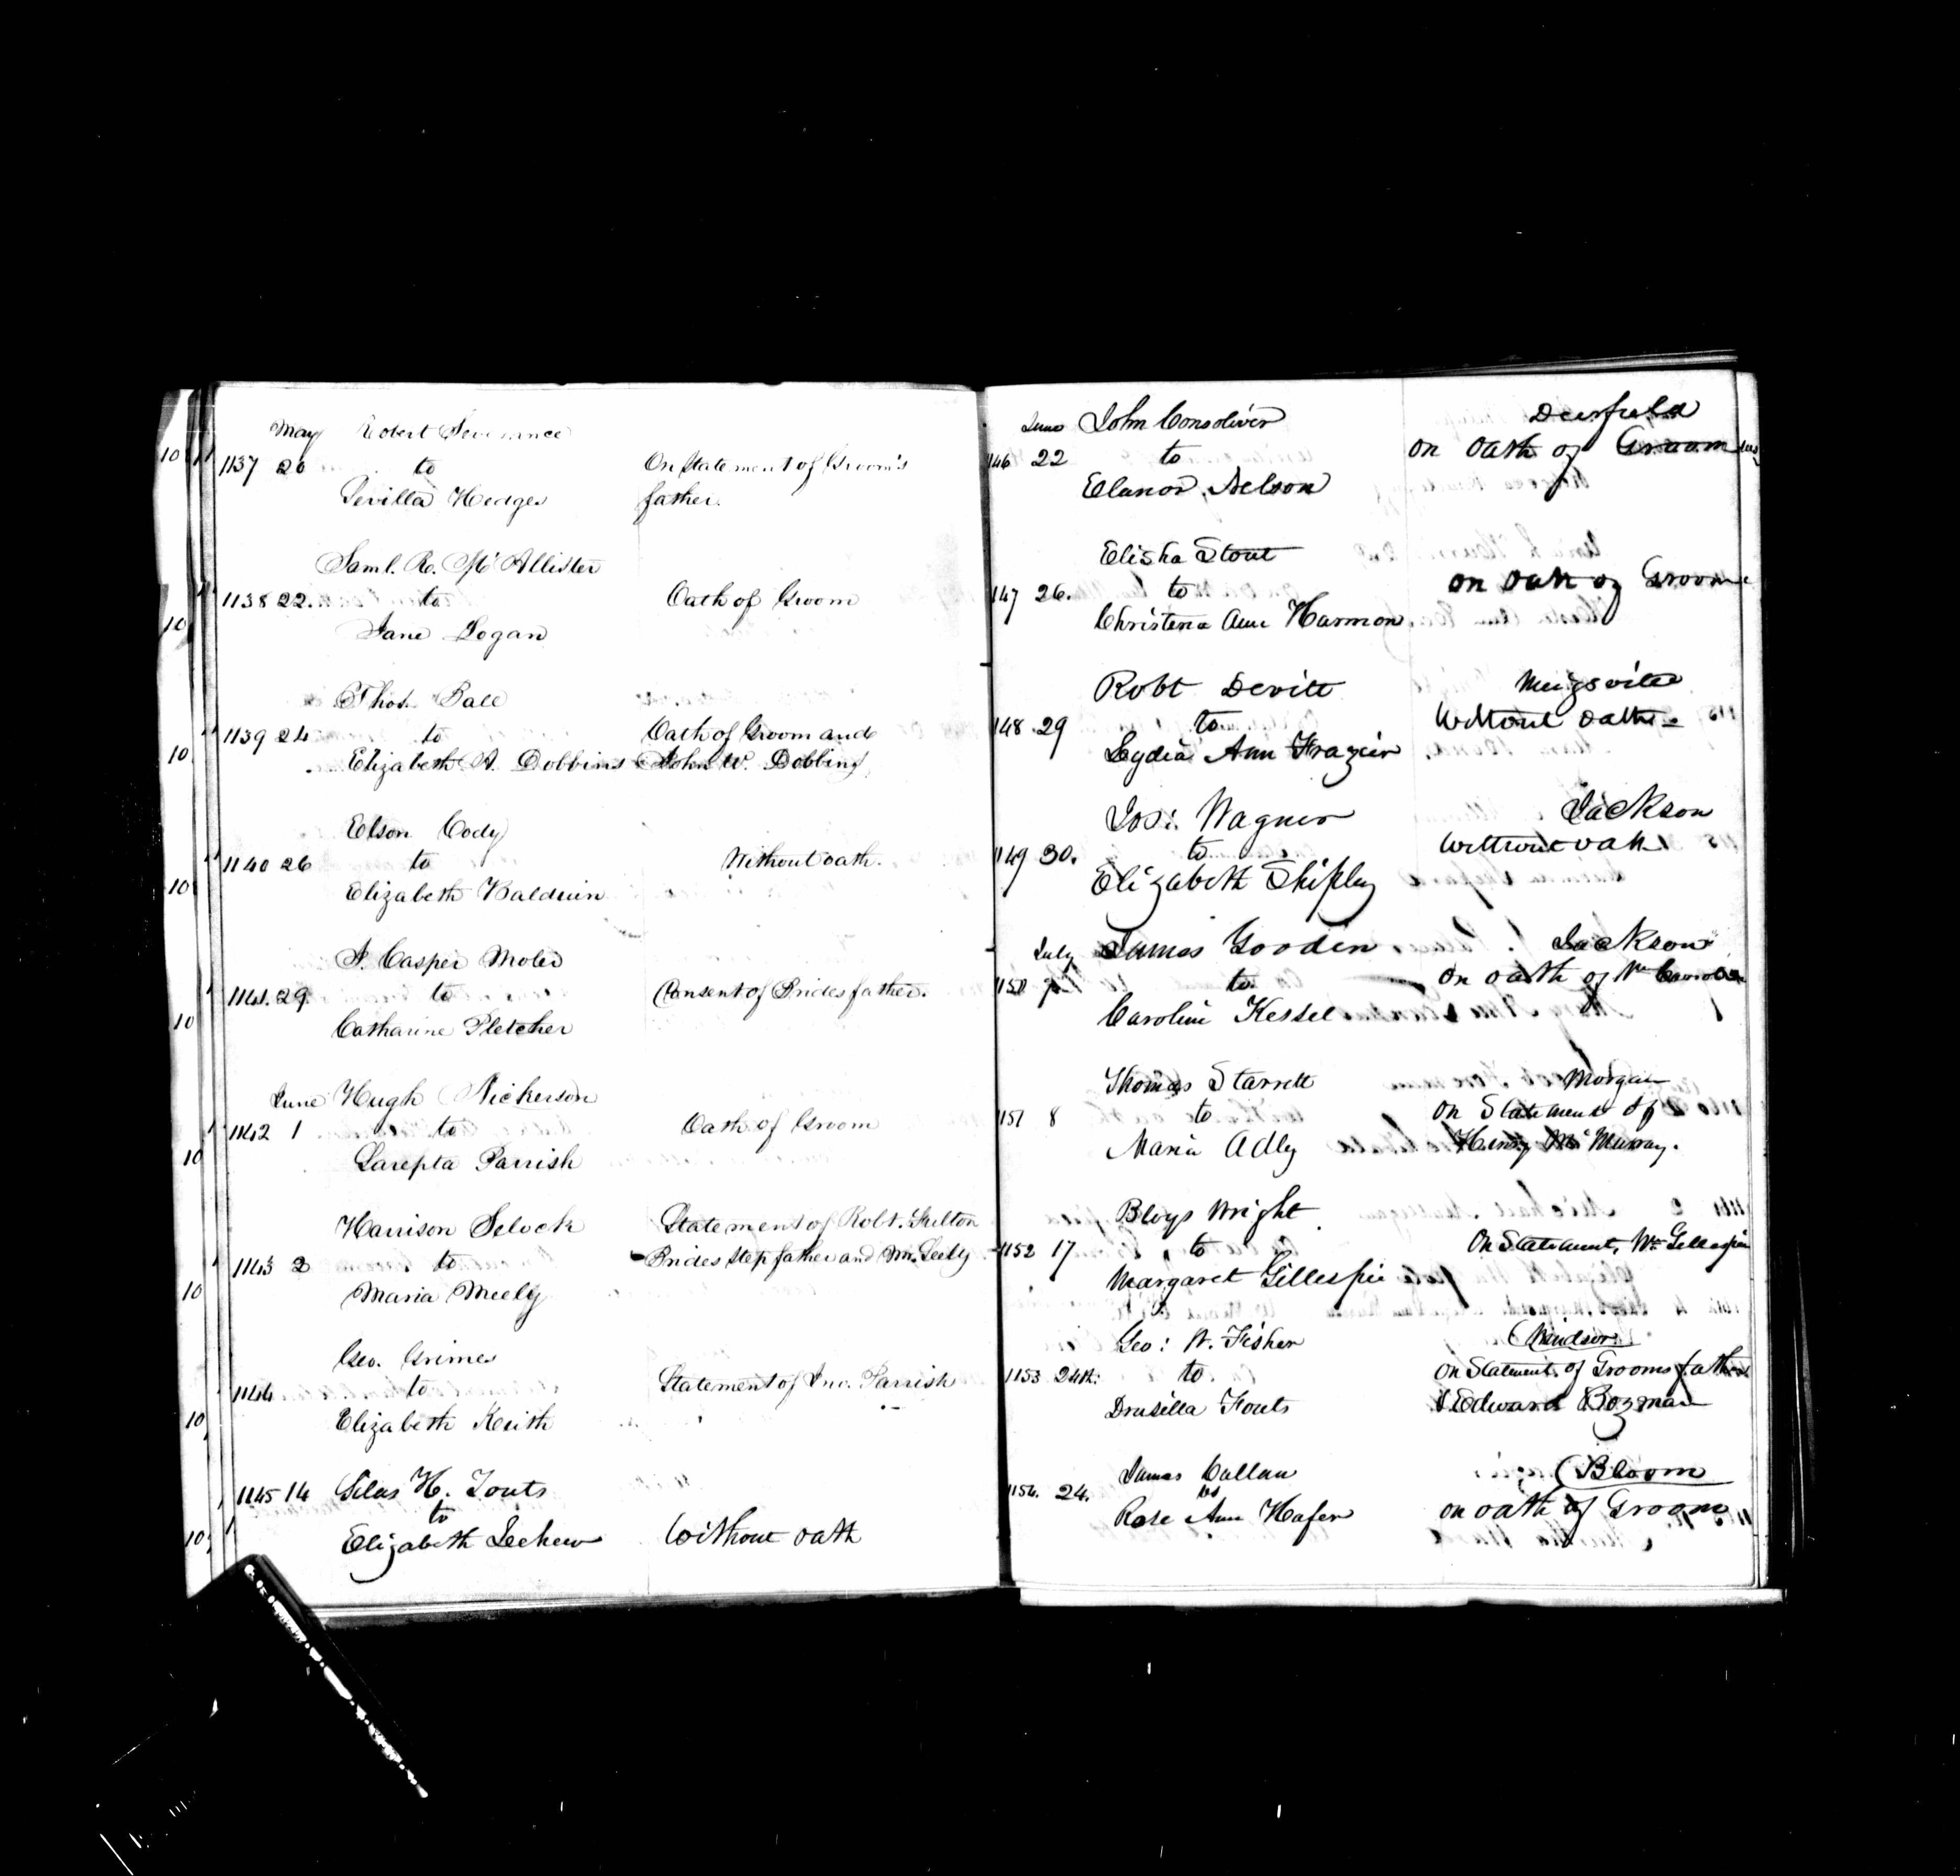 May Robert Severance
10 1137 20 to On Statement of Groom's
Sevilla Hedges father.
Saml. R. McAllister
1138 22. to Oath of Groom
10 Jane Logan
Thos. Ball
1139 24 to Oath of Groom and
10 Elizabeth A. Dobbins John W. Dobbins
Elson Cody
1140 26 to Without oath.
10 Elizabeth Baldwin
Casper Moler
1141. 29. to Consent of Brides father.
10 Catharine Pletcher
June Hugh Nickerson
1142 1 to Oath of Groom
10 Sarepta Parrish
Harrison Selock Statement of Robt. Fulton
1143 2 to Brides Step father and Wm.
10 Maria Meely
Geo. Grimes
1144 to Statement of Jno. Parrish
10 Elizabeth Keith
1145 14 Silas H. Fouts
to
10 Elizabeth Lechew Without oath
June John Consoliver Deerfield
1146 22 to on oath of Groom
Elanor Nelson
Elisha Stout
1147 26. to on oath of Groom
Christena Ann Harmon
Robt Devitt Meigsville
1148 29 to Without oath
Lydia Ann Frazier
Jos: Wagner Jackson
1149 30. to Without oath
Elizabeth Shipley
July James Gooden Jackson
1150 to on oath of Wm
Caroline Kessel
Thomas Starrett Morgan
1151 8 to on Statement of
Maria Adly Henry McMurray.
Bloys Wright
1152 17 to On Statement, Wm Gillespie
Margaret Gillespie
Geo: W. Fisher Windsor
1153 24th: to on Statement of Grooms father
Drusilla Fouts & Edward Bozman
James Callan Bloom
1154. 24. to
Rose Ann Hafer on oath of Groom